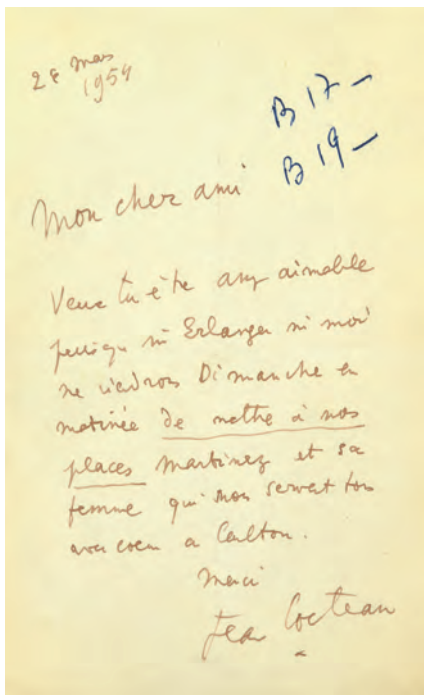 28 mars
1954
B 17 –
B 19 –
Mon cher ami
Veux tu être assez aimable
puisque ni Erlanger ni moi
ne viendrons Dimanche en
matinée de mettre à nos
places Martinez et sa
femme qui nous servent tous
avec coeur a Carlton.
Merci
Jean Cocteau